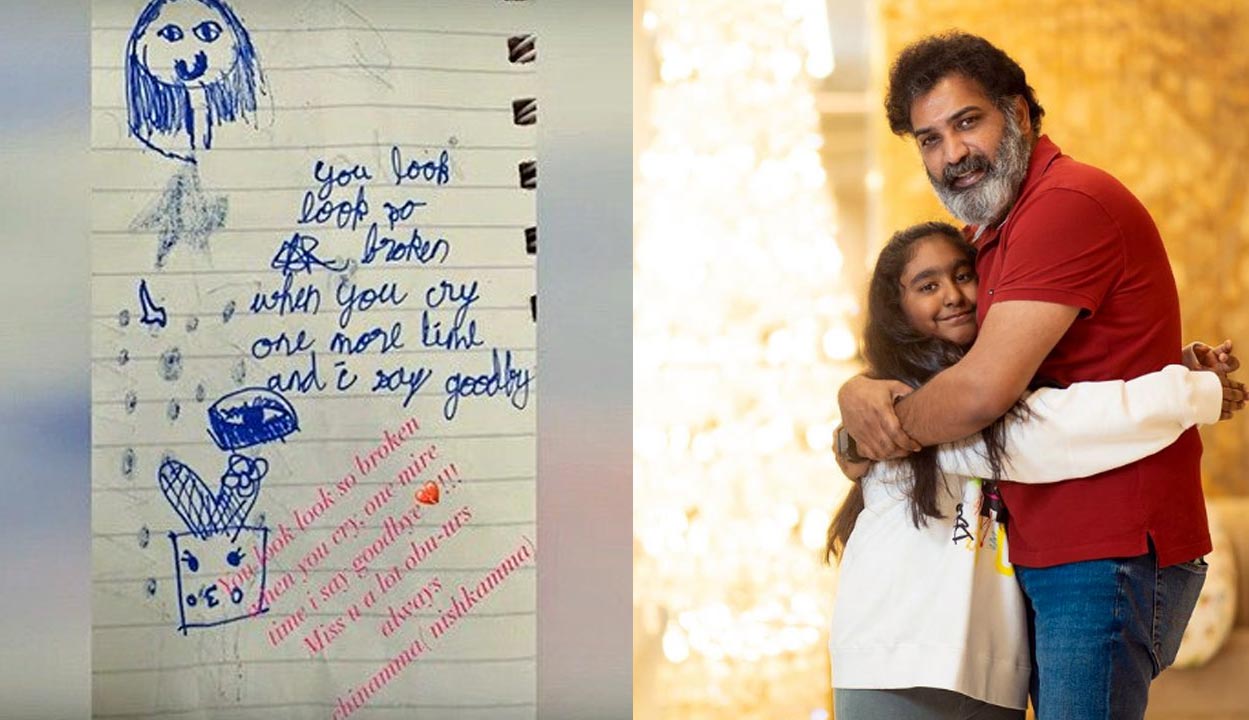 you look
look so
broken
when you cry
one more time
and i say goodby
You look look so broken
when you cry, one mire
time i say goodbye💔!!!
Miss u a lot obu-urs
always
chinamma( nishkamma)